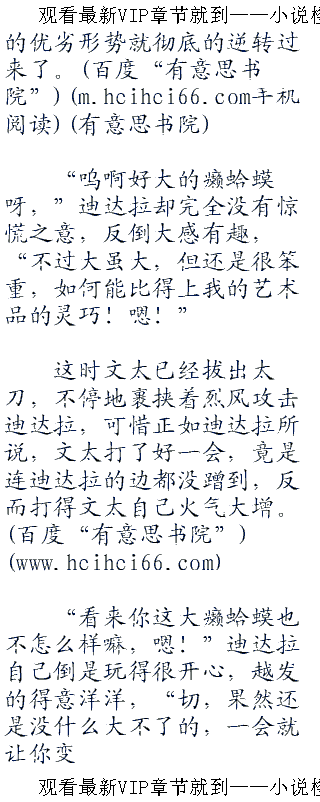 观看最新VIP章节就到——小说检
的优劣形势就彻底的逆转过
来了。(百度“有意思书
院”)(m.hcihci66.com手机
阅读)(有意思书院)
“呜啊好大的癞蛤蟆
呀，”迪达拉却完全没有惊
慌之意，反倒大感有趣，
“不过大虽大，但还是很笨
重，如何能比得上我的艺术
品的灵巧！嗯！”
这时文太已经拔出太
刀，不停地裹挟着烈风攻击
迪达拉，可惜正如迪达拉所
说，文太打了好一会，竟是
连迪达拉的边都没蹭到，反
而打得文太自己火气大增。
(百度“有意思书院”)
(www.hcihci66.com)
“看来你这大癞蛤蟆也
不怎么样嘛，嗯！”迪达拉
自己倒是玩得很开心，越发
的得意洋洋，“切，果然还
是没什么大不了的，一会就
让你变
观看最新VIP章节就到——小说检